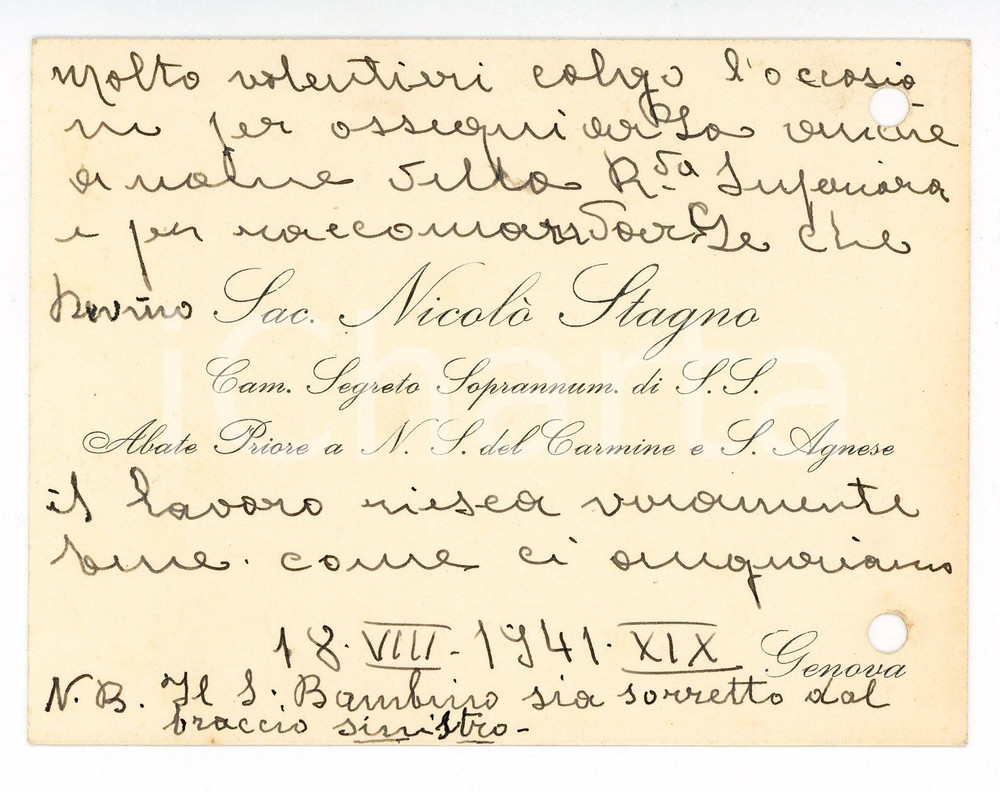 Molto volentieri colgo l'occasio
ne per ossequiarLa anche
a nome della R.da Superiora
e per raccomandarLe che
Sac. Nicolò Stagno
Cam. Segreto Soprannum. di S. S.
Abate Priore a N. S. del Carmine e S. Agnese
il lavoro riesca veramente
bene. come ci auguriamo
18. VIII - 1941. XIX
Genova
N. B. Il S. Bambino sia sorretto dal
braccio sinistro -
iCharta